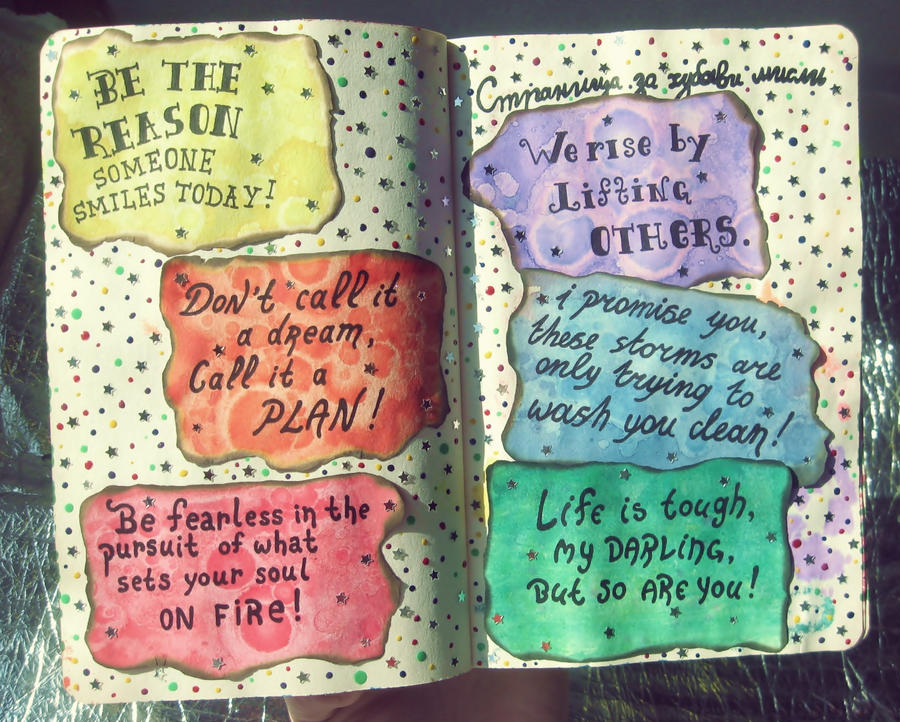 BE THE
REASON
SOMEONE
SMILES TODAY!
DON'T call it
a dream,
Call it a
PLAN!
Be fearless in the
pursuit of what
sets your soul
ON FiRe!
Страница за хубави мисли
We rise by
Lifting
OTHERS.
i promise you,
these storms are
only trying to
wash you clean!
Life is tough,
my DARLing,
But so ARe you!